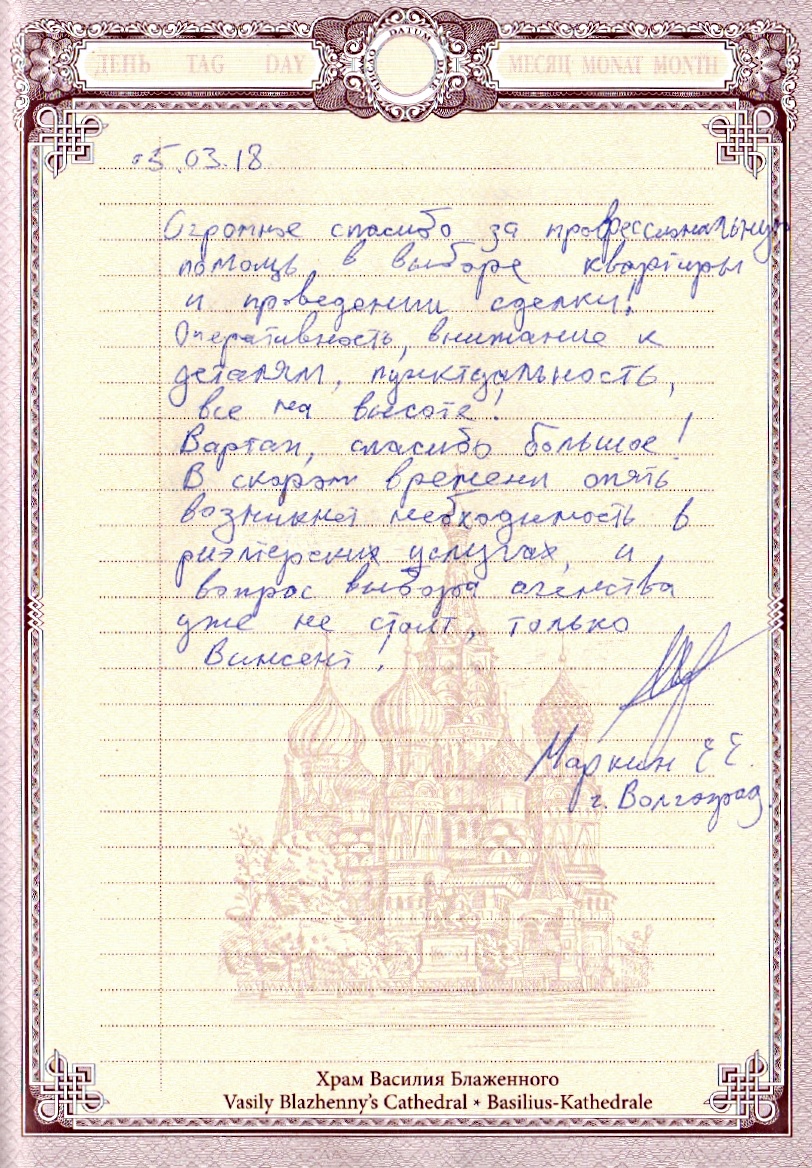 ДЕНЬ TAG DAY
ЧИСЛО DATUM DATE
МЕСЯЦ MONAT MONTH
05.03.18
Огромное спасибо за профессиональную
помощь в выборе квартиры
и проведении сделки!
Оперативность, внимание к
деталям, пунктуальность,
все на высоте!
Вартан, спасибо большое!
В скором времени опять
возникнет необходимость в
риэлтерских услугах, и
вопрос выбора агенства
уже не стоит, только
Винсент!
Маркин Е Е.
г. Волгоград.
Храм Василия Блаженного
Vasily Blazhenny's Cathedral * Basilius-Kathedrale